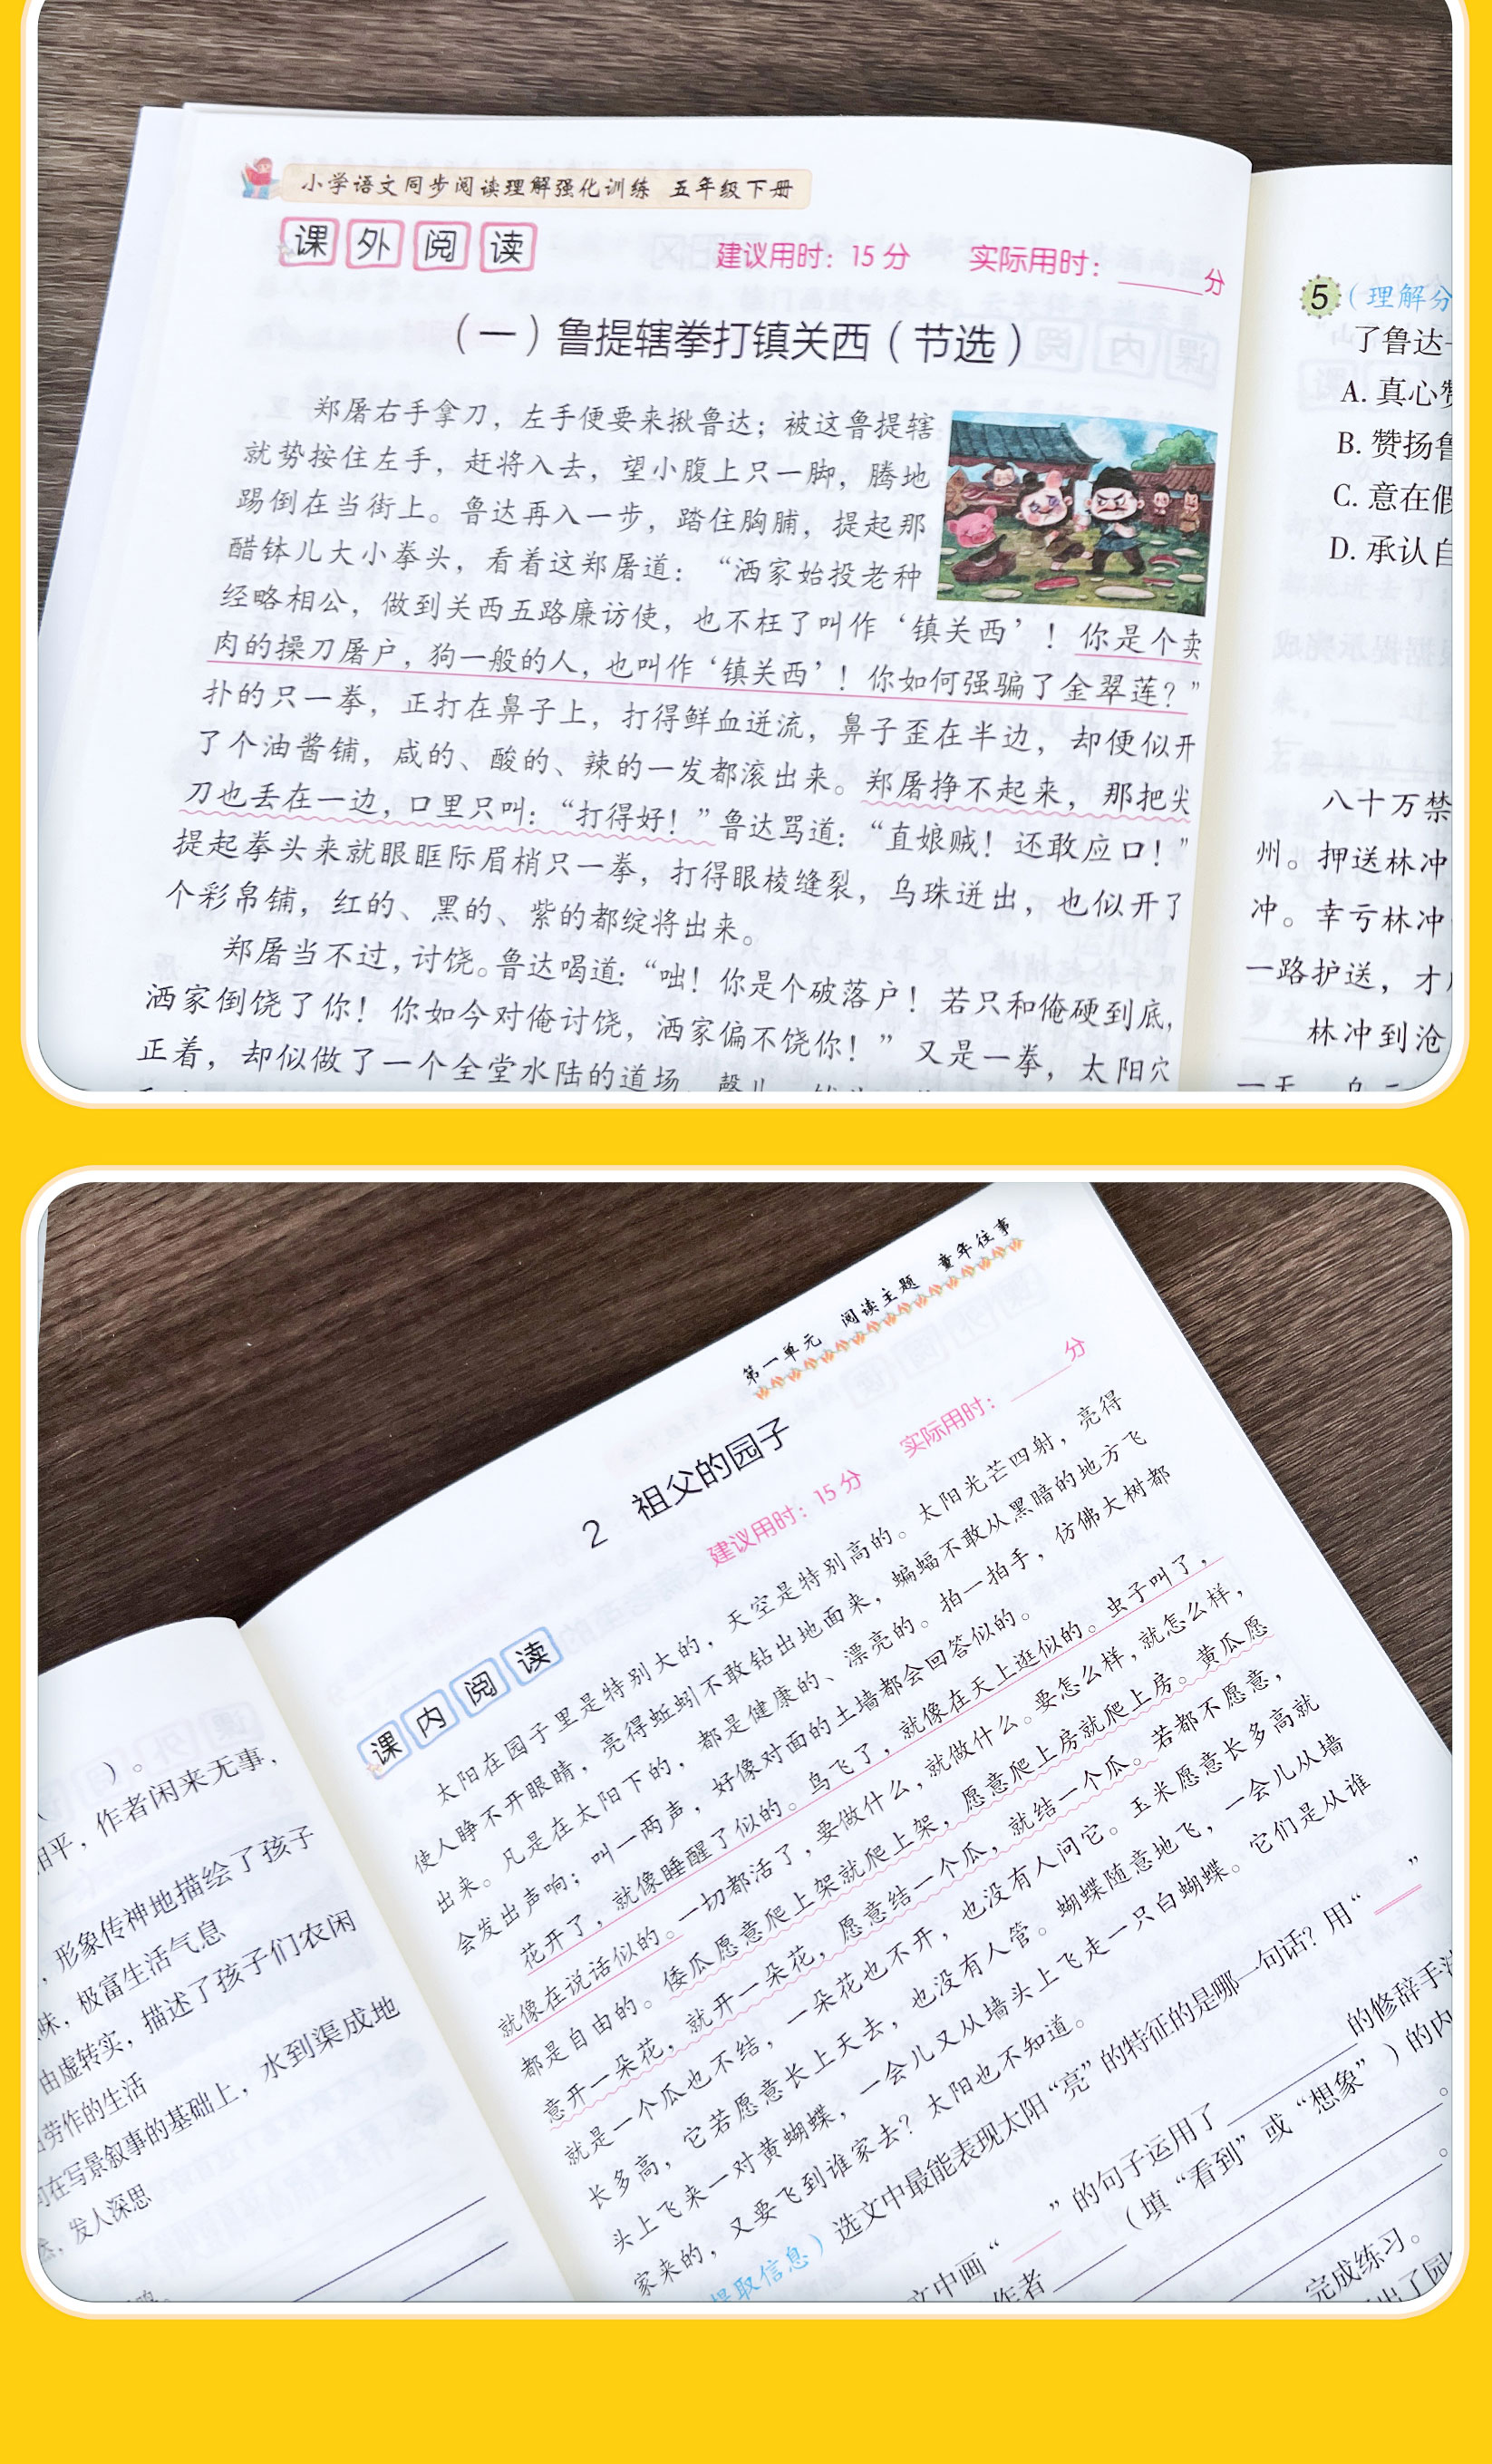 小学语文同步阅读理解强化训练 五年级下册
课外阅读
建议用时：15分 实际用时：______分
（一）鲁提辖拳打镇关西（节选）
郑屠右手拿刀，左手便要来揪鲁达；被这鲁提辖
就势按住左手，赶将入去，望小腹上只一脚，腾地
踢倒在当街上。鲁达再入一步，踏住胸脯，提起那
醋钵儿大小拳头，看着这郑屠道：“洒家始投老种
经略相公，做到关西五路廉访使，也不枉了叫作‘镇关西’！你是个卖
肉的操刀屠户，狗一般的人，也叫作‘镇关西’！你如何强骗了金翠莲？”
扑的只一拳，正打在鼻子上，打得鲜血迸流，鼻子歪在半边，却便似开
了个油酱铺，咸的、酸的、辣的一发都滚出来。郑屠挣不起来，那把尖
刀也丢在一边，口里只叫：“打得好！”鲁达骂道：“直娘贼！还敢应口！”
提起拳头来就眼眶际眉梢只一拳，打得眼棱缝裂，乌珠迸出，也似开了
个彩帛铺，红的、黑的、紫的都绽将出来。
郑屠当不过，讨饶。鲁达喝道：“咄！你是个破落户！若只和俺硬到底，
洒家倒饶了你！你如今对俺讨饶，洒家偏不饶你！”又是一拳，太阳穴
正着，却似做了一个全堂水陆的道场，磬儿
5（理解分
了鲁达
A. 真心赞
B. 赞扬鲁
C. 意在假
D. 承认自
八十万禁
州。押送林冲
冲。幸亏林冲
一路护送，才
林冲到沧
第一单元 阅读主题 童年往事
2 祖父的园子
建议用时：15分 实际用时：______分
课内阅读
太阳在园子里是特别大的，天空是特别高的。太阳光芒四射，亮得
使人睁不开眼睛，亮得蚯蚓不敢钻出地面来，蝙蝠不敢从黑暗的地方飞
出来。凡是在太阳下的，都是健康的、漂亮的。拍一拍手，仿佛大树都
会发出声响；叫一两声，好像对面的土墙都会回答似的。
花开了，就像睡醒了似的。鸟飞了，就像在天上逛似的。虫子叫了，
就像在说话似的。一切都活了，要做什么，就做什么。要怎么样，就怎么样，
都是自由的。倭瓜愿意爬上架就爬上架，愿意爬上房就爬上房。黄瓜愿
意开一朵花，就开一朵花，愿意结一个瓜，就结一个瓜。若都不愿意，
就是一个瓜也不结，一朵花也不开，也没有人问它。玉米愿意长多高就
长多高，它若愿意长上天去，也没有人管。蝴蝶随意地飞，一会儿从墙
头上飞来一对黄蝴蝶，一会儿又从墙头上飞走一只白蝴蝶。它们是从谁
家来的，又要飞到谁家去？太阳也不知道。
提取信息）选文中最能表现太阳“亮”的特征的是哪一句话？用“____”
文中画“____”的句子运用了__________的修辞手法
作者________（填“看到”或“想象”）的内
完成练习。
出了园
）。
相平，作者闲来无事，
，形象传神地描绘了孩子
味，极富生活气息
由虚转实，描述了孩子们农闲
劳作的生活
在写景叙事的基础上，水到渠成地
发人深思